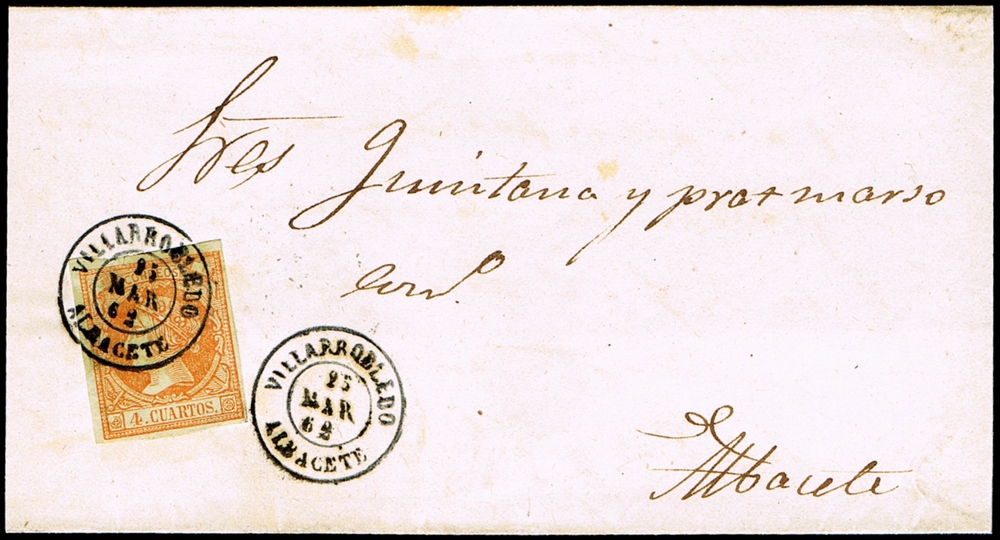 Sres Quintana y prat marso
Albacete
VILLARROBLEDO
25
MAR
62
ALBACETE
4 CUARTOS.
VILLARROBLEDO
25
MAR
62
ALBACETE